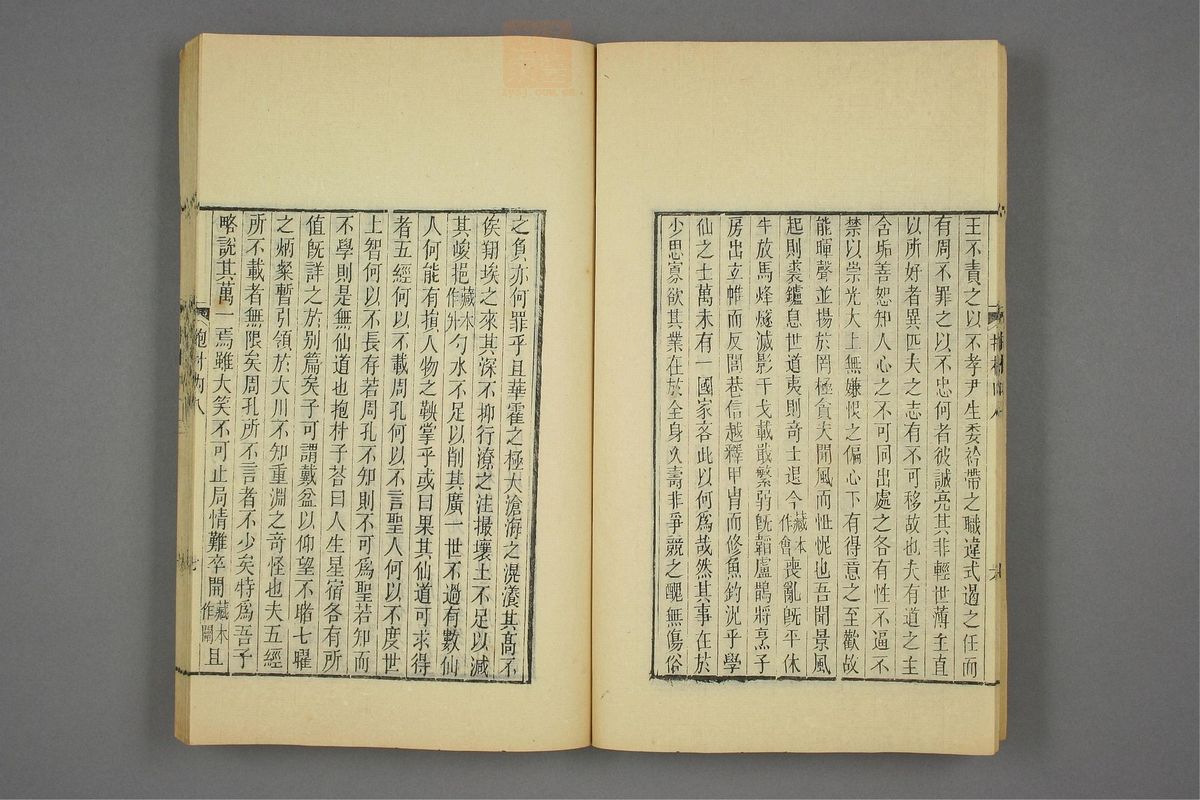 王不責之以不孝尹生委衿帶之職違式遏之任而
有周不罪之以不忠何者彼誠亮其非輕世薄主直
以所好者異匹夫之志有不可移故也夫有道之主
含垢善恕知人心之不可同出處之各有性不逼不
禁以崇光大上無嫌恨之偏心下有得意之至歡故
能暉聲並揚於罔極貪夫聞風而忸怩也吾聞景風
起則裘鑪息世道夷則奇士退今藏本作會喪亂旣平休
牛放馬烽燧滅影干戈載戢繁弱旣韜盧鵲將烹子
房出立帷而反閭巷信越釋甲冑而修魚釣況乎學
仙之士萬未有一國家吝此以何爲哉然其事在於
少思寡欲其業在於全身久壽非爭競之醜無傷俗
之負亦何罪乎且華霍之極大滄海之滉瀁其高不
俟翔埃之來其深不抑行潦之注撮壤土不足以減
其峻挹藏本作升勺水不足以削其廣一世不過有數仙
人何能有損人物之鞅掌乎或曰果其仙道可求得
者五經何以不載周孔何以不言聖人何以不度世
上智何以不長存若周孔不知則不可爲聖若知而
不學則是無仙道也抱朴子荅曰人生星宿各有所
值旣詳之於別篇矣子可謂戴盆以仰望不睹七曜
之炳粲暫引領於大川不知重淵之奇怪也夫五經
所不載者無限矣周孔所不言者不少矣特爲吾子
略說其萬一焉雖大笑不可止局情難卒開藏本作關且
抱朴內八